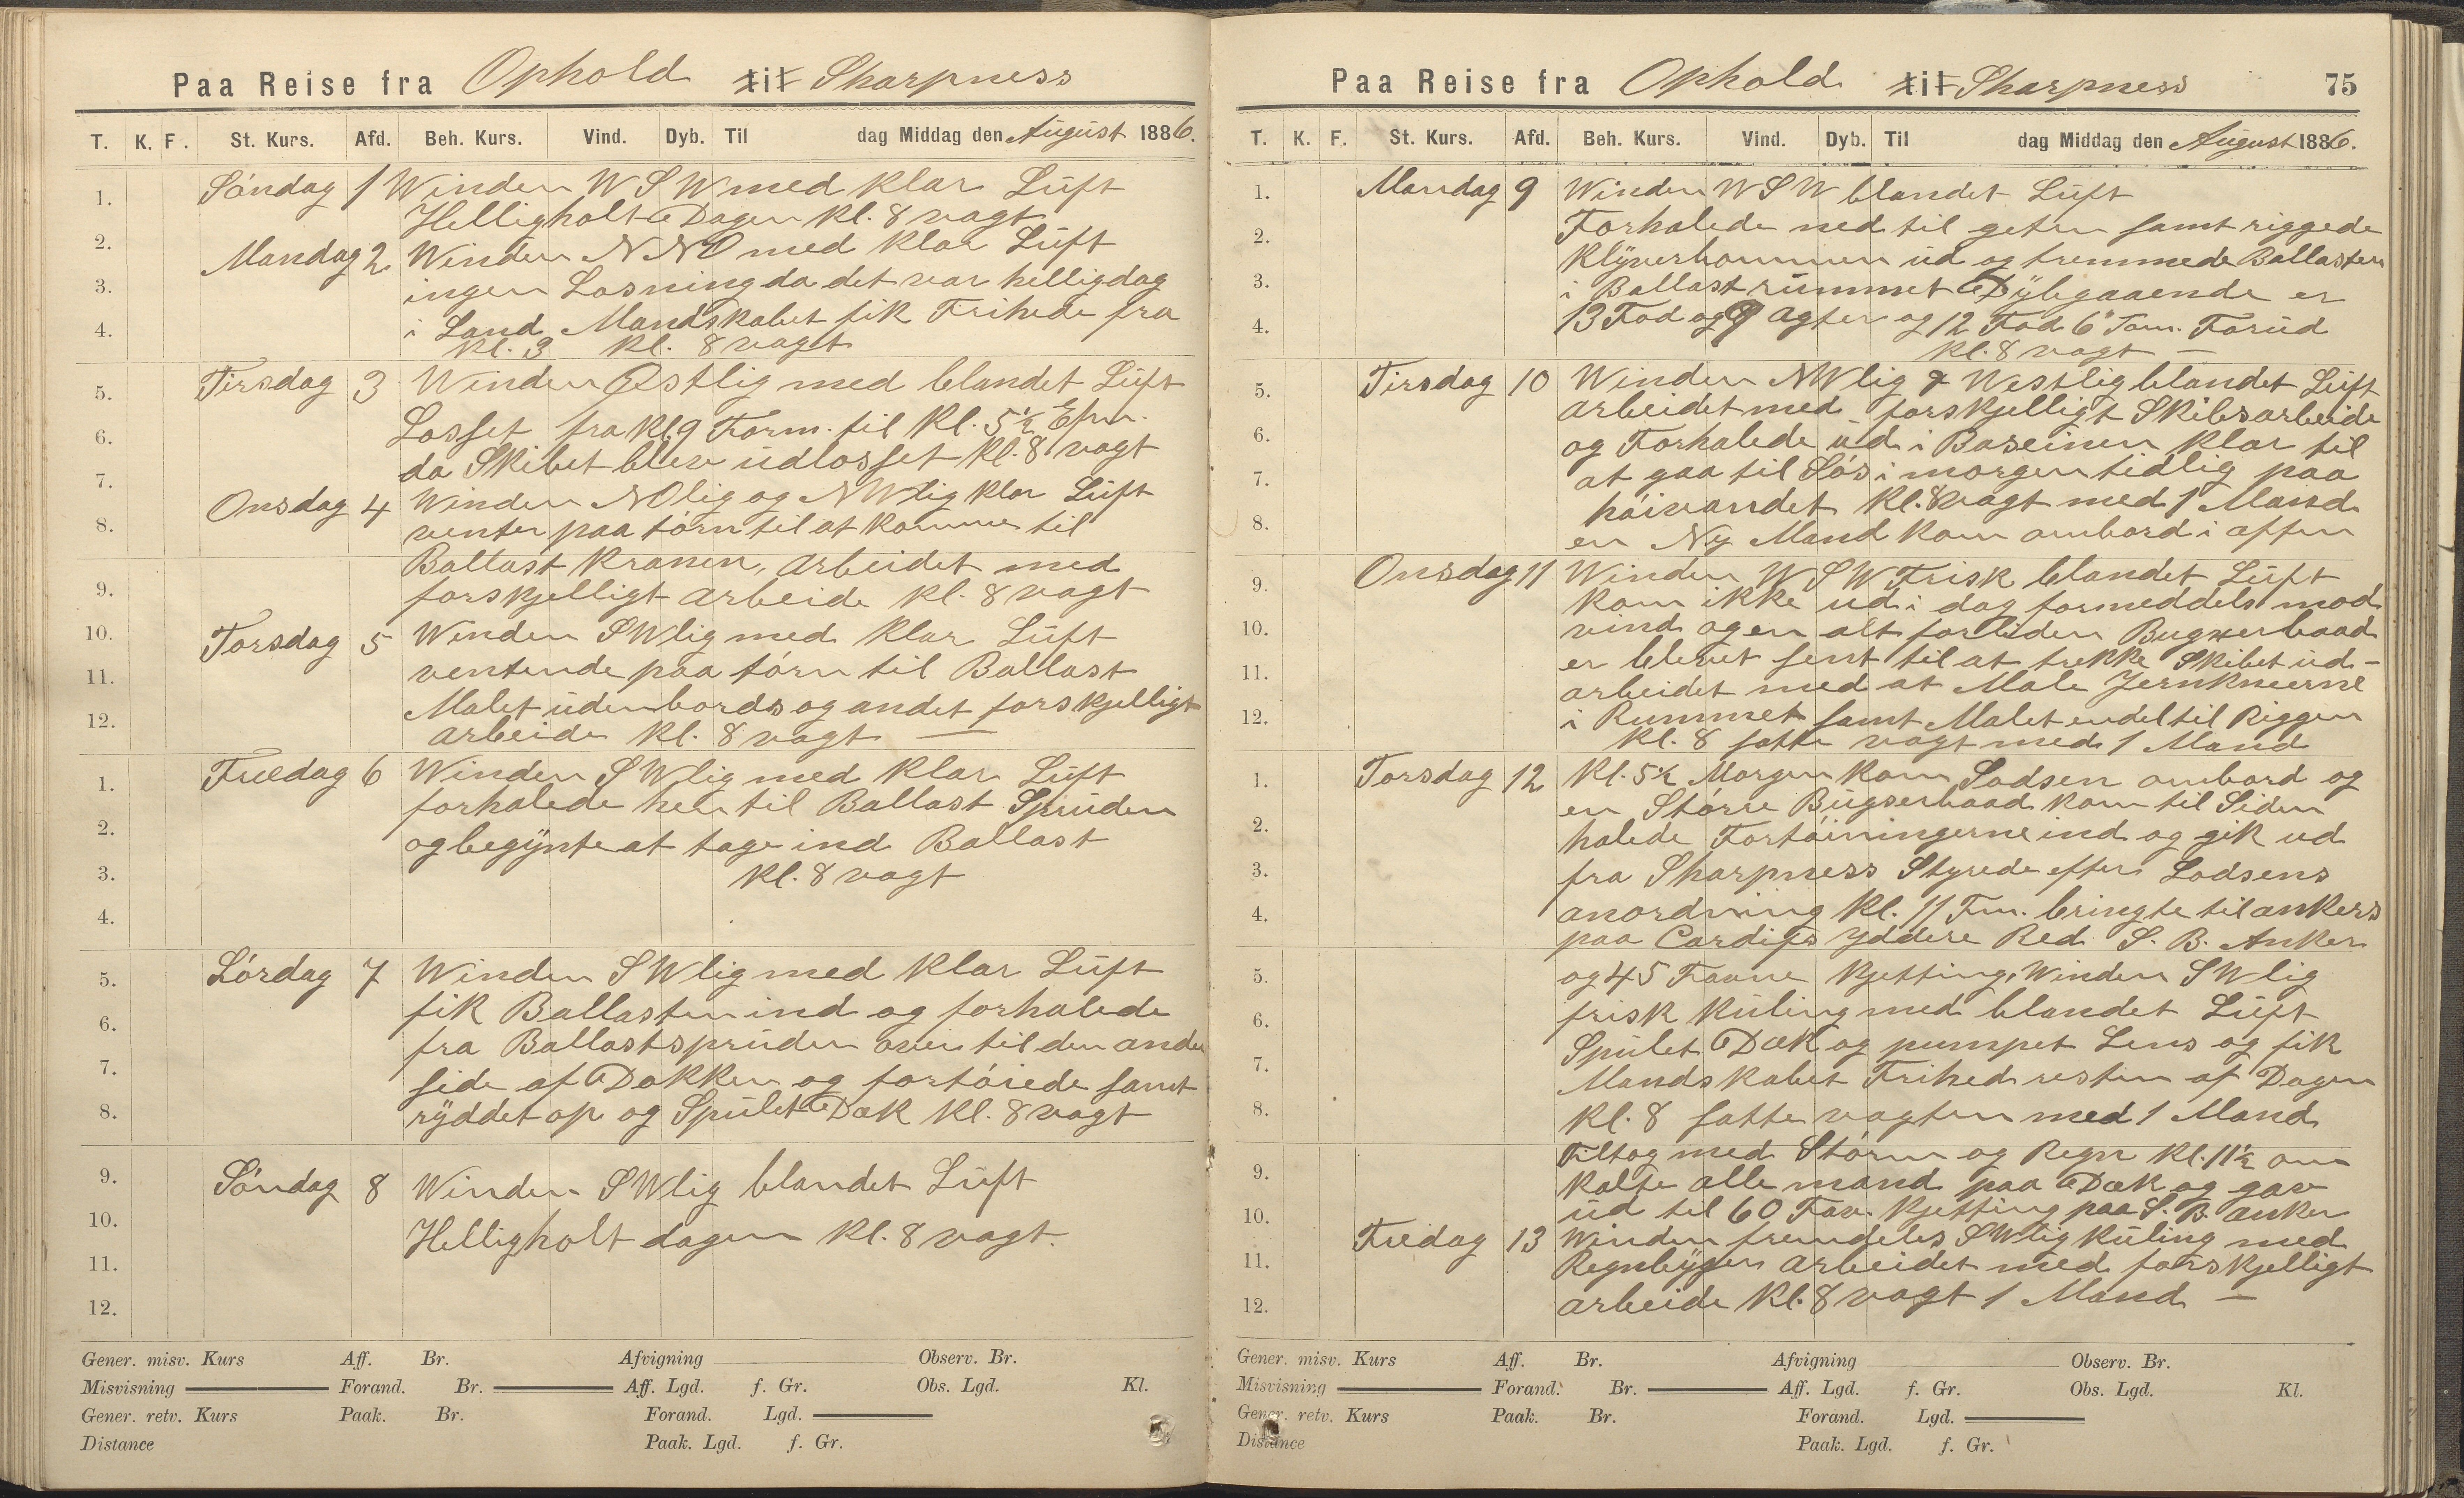 Paa Reise fra Ophold til Sharpness
T. K. F. St. Kurs. Afd. Beh. Kurs. Vind. Dyb. Til dag Middag den August 1886.
1.
2.
3.
4.
5.
6.
7.
8.
9.
10.
11.
12.
1.
2.
3.
4.
5.
6.
7.
8.
9.
10.
11.
12.
Söndag 1 Winden W S W med klar Luft
Helligholt Dagen Kl. 8 vagt
Mandag 2. Winden N N O med klar Luft
ingen Losning da det var helligdag
i Land Mandskabet fik Frihede fra
Kl. 3 Kl. 8 vagt
Tirsdag 3 Winden Østlig med blandet Luft
Losset fra Kl. 9 Form. til Kl. 5½ Efm.
da Skibet blev udlosset Kl. 8 vagt
Onsdag 4 Winden NOlig og NWlig klar Luft
venter paa törn til at komme til
Ballast Kranen, arbeidet med
forskjelligt arbeide Kl. 8 vagt
Torsdag 5 Winden SWlig med klar Luft
ventende paa törn til Ballast
Malet udenbords og andet forskjelligt
arbeide Kl. 8 vagt —
Fredag 6 Winden SWlig med klar Luft
forhalede hen til Ballast Spruden
og begynte at tage ind Ballast
Kl. 8 vagt
Lördag 7 Winden SWlig med klar Luft
fik Ballasten ind og forhalede
fra Ballastspruden over til den anden
side af Dokken og fortöiede samt
ryddet op og Spulet Dæk Kl. 8 vagt
Söndag 8 Winden SWlig blandet Luft
Helligholt dagen Kl. 8 vagt.
Gener. misv. Kurs Aff. Br. Afvigning Observ. Br.
Misvisning Forand. Br. Aff. Lgd. f. Gr. Obs. Lgd. Kl.
Gener. retv. Kurs Paak. Br. Forand. Lgd.
Distance Paak. Lgd. f. Gr.
Paa Reise fra Ophold til Sharpness 75
T. K. F. St. Kurs. Afd. Beh. Kurs. Vind. Dyb. Til dag Middag den August 1886.
1.
2.
3.
4.
5.
6.
7.
8.
9.
10.
11.
12.
1.
2.
3.
4.
5.
6.
7.
8.
9.
10.
11.
12.
Mandag 9 Winden W S W blandet Luft
Forhalede ned til geten samt riggede
Klyverbommen ud og tremmede Ballasten
i Ballast rummet Dybgaaende er
13 Fod og 9 agter og 12 Fod 6" Tom. Forud
Kl. 8 vagt —
Tirsdag 10 Winden NWlig & Westlig blandet Luft
arbeidet med forskjelligt Skibsarbeide
og Forhalede ud i Baseinen klar til
at gaa til Sös i morgen tidlig paa
höivandet Kl. 8 vagt med 1 Mand
en Ny Mand kom ombord i aften
Onsdag 11 Winden W S W Frisk blandet Luft
kom ikke ud i dag formeddels mod
vind og en alt for liden Bugserbaad
er blevet sent til at trekke Skibet ud -
arbeidet med at Male Jernkneerne
i Rummet samt Malet endel til Riggen
Kl. 8 satte vagt med 1 Mand
Torsdag 12 Kl. 5½ Morgen kom Lodsen ombord og
en Större Bugserbaad kom til Siden
halede Fortöiningerne ind og gik ud
fra Sharpness Styrede efter Lodsens
anordning Kl. 11 Fm. bringte til ankers
paa Cardifs yddere Red S. B. Anker
og 45 Favne Kjetting, Winden SWlig
frisk Kuling med blandet Luft
Spulet Dæk og pumpet Lens og fik
Mandskabet Frihed resten af Dagen
Kl. 8 satte vagten med 1 Mand
Tiltog med Störm og Regn Kl. 11½ om
kalte alle mand paa Dæk og gav
ud til 60 Fav. Kjetting paa S. B. anker
Fredag 13 Winden fremdeles SWlig Kuling med
Regnbyger arbeidet med forskjelligt
arbeide Kl. 8 vagt 1 Mand —
Gener. misv. Kurs Aff. Br. Afvigning Observ. Br.
Misvisning Forand. Br. Aff. Lgd. f. Gr. Obs. Lgd. Kl.
Gener. retv. Kurs Paak. Br. Forand. Lgd.
Distance Paak. Lgd. f. Gr.